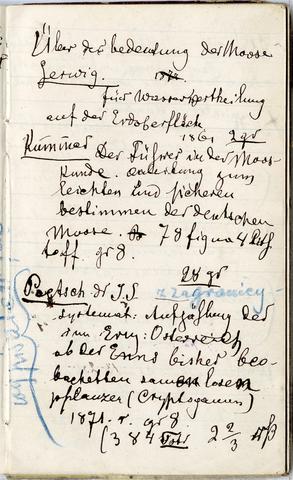 Über die bedeutung der Moose
Gerwig.
für Wasservertheilung
auf der Erdoberfläch
1861 2 gr
Kummer Der Führer in der Moos-
kunde. anleitung zum
leichten und sicheren
bestimmen der deutschen
Moose. 78 figu a 4 lith
taff. gr 8.
28 gr
Poetsch dr J.S z zagranicy
systemat: Aufzählung der
im Erzh: Osterreich
ob der Enns bisher beo-
bachteten samenlosen
pflanzen (Cryptogamen)
1871. r. gr 8.
(384 2 2/3